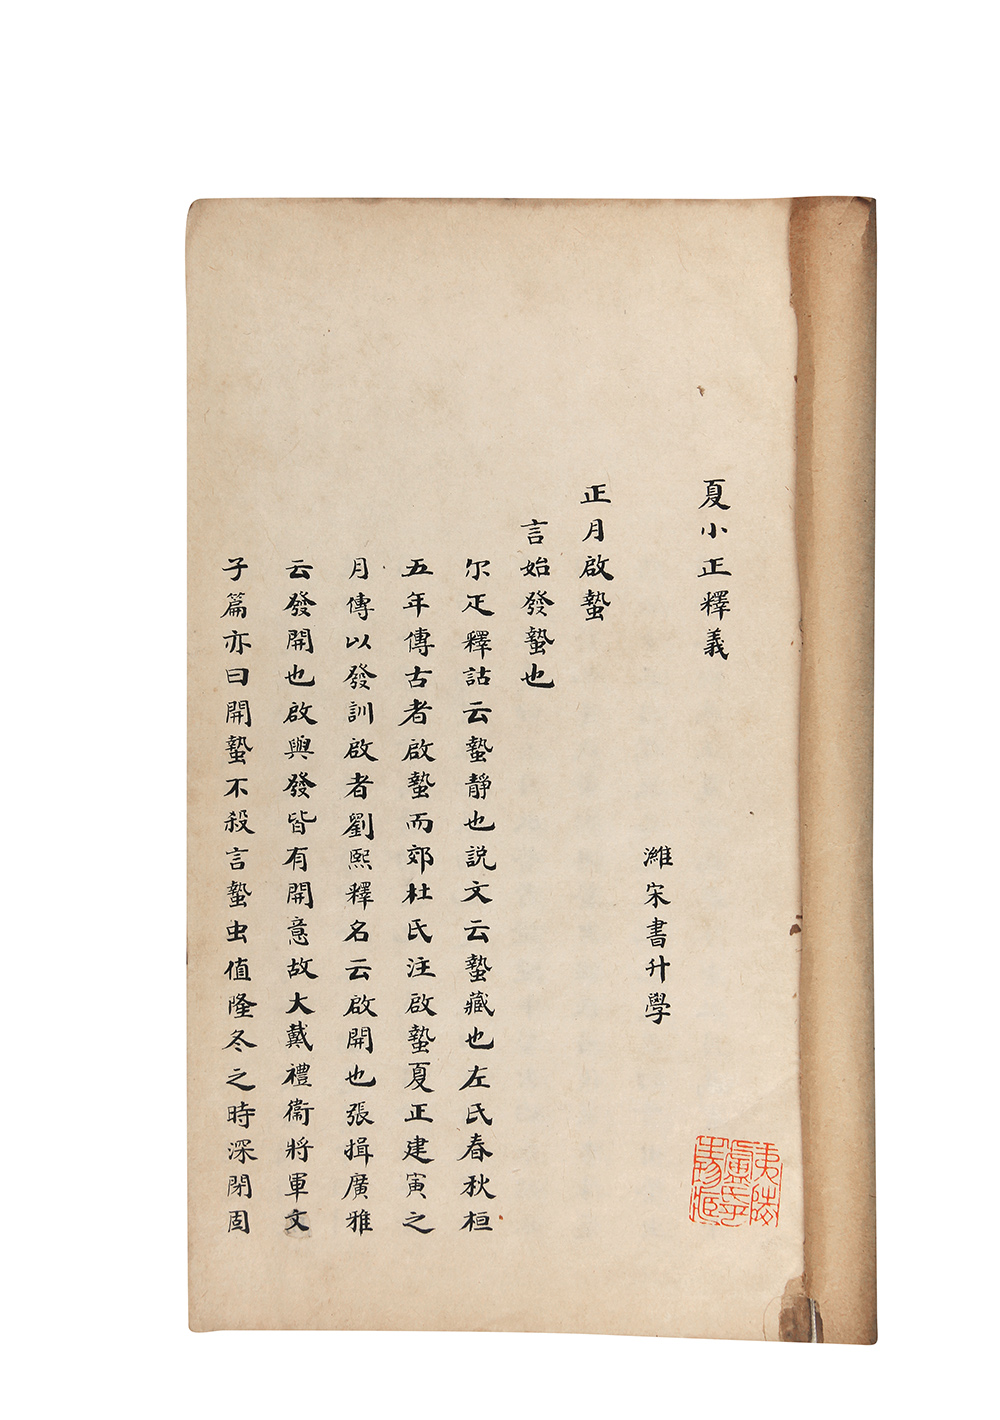 夏小正釋義
濰宋書升學
正月啟蟄
言始發蟄也
尔疋釋詁云蟄靜也説文云蟄藏也左氏春秋桓
五年傳古者啟蟄而郊杜氏注啟蟄夏正建寅之
月傳以發訓啟者劉熙釋名云啟開也張揖廣雅
云發開也啟與發皆有開意故大戴禮衞將軍文
子篇亦曰開蟄不殺言蟄虫值隆冬之時深閉固
夷陵
盧氏